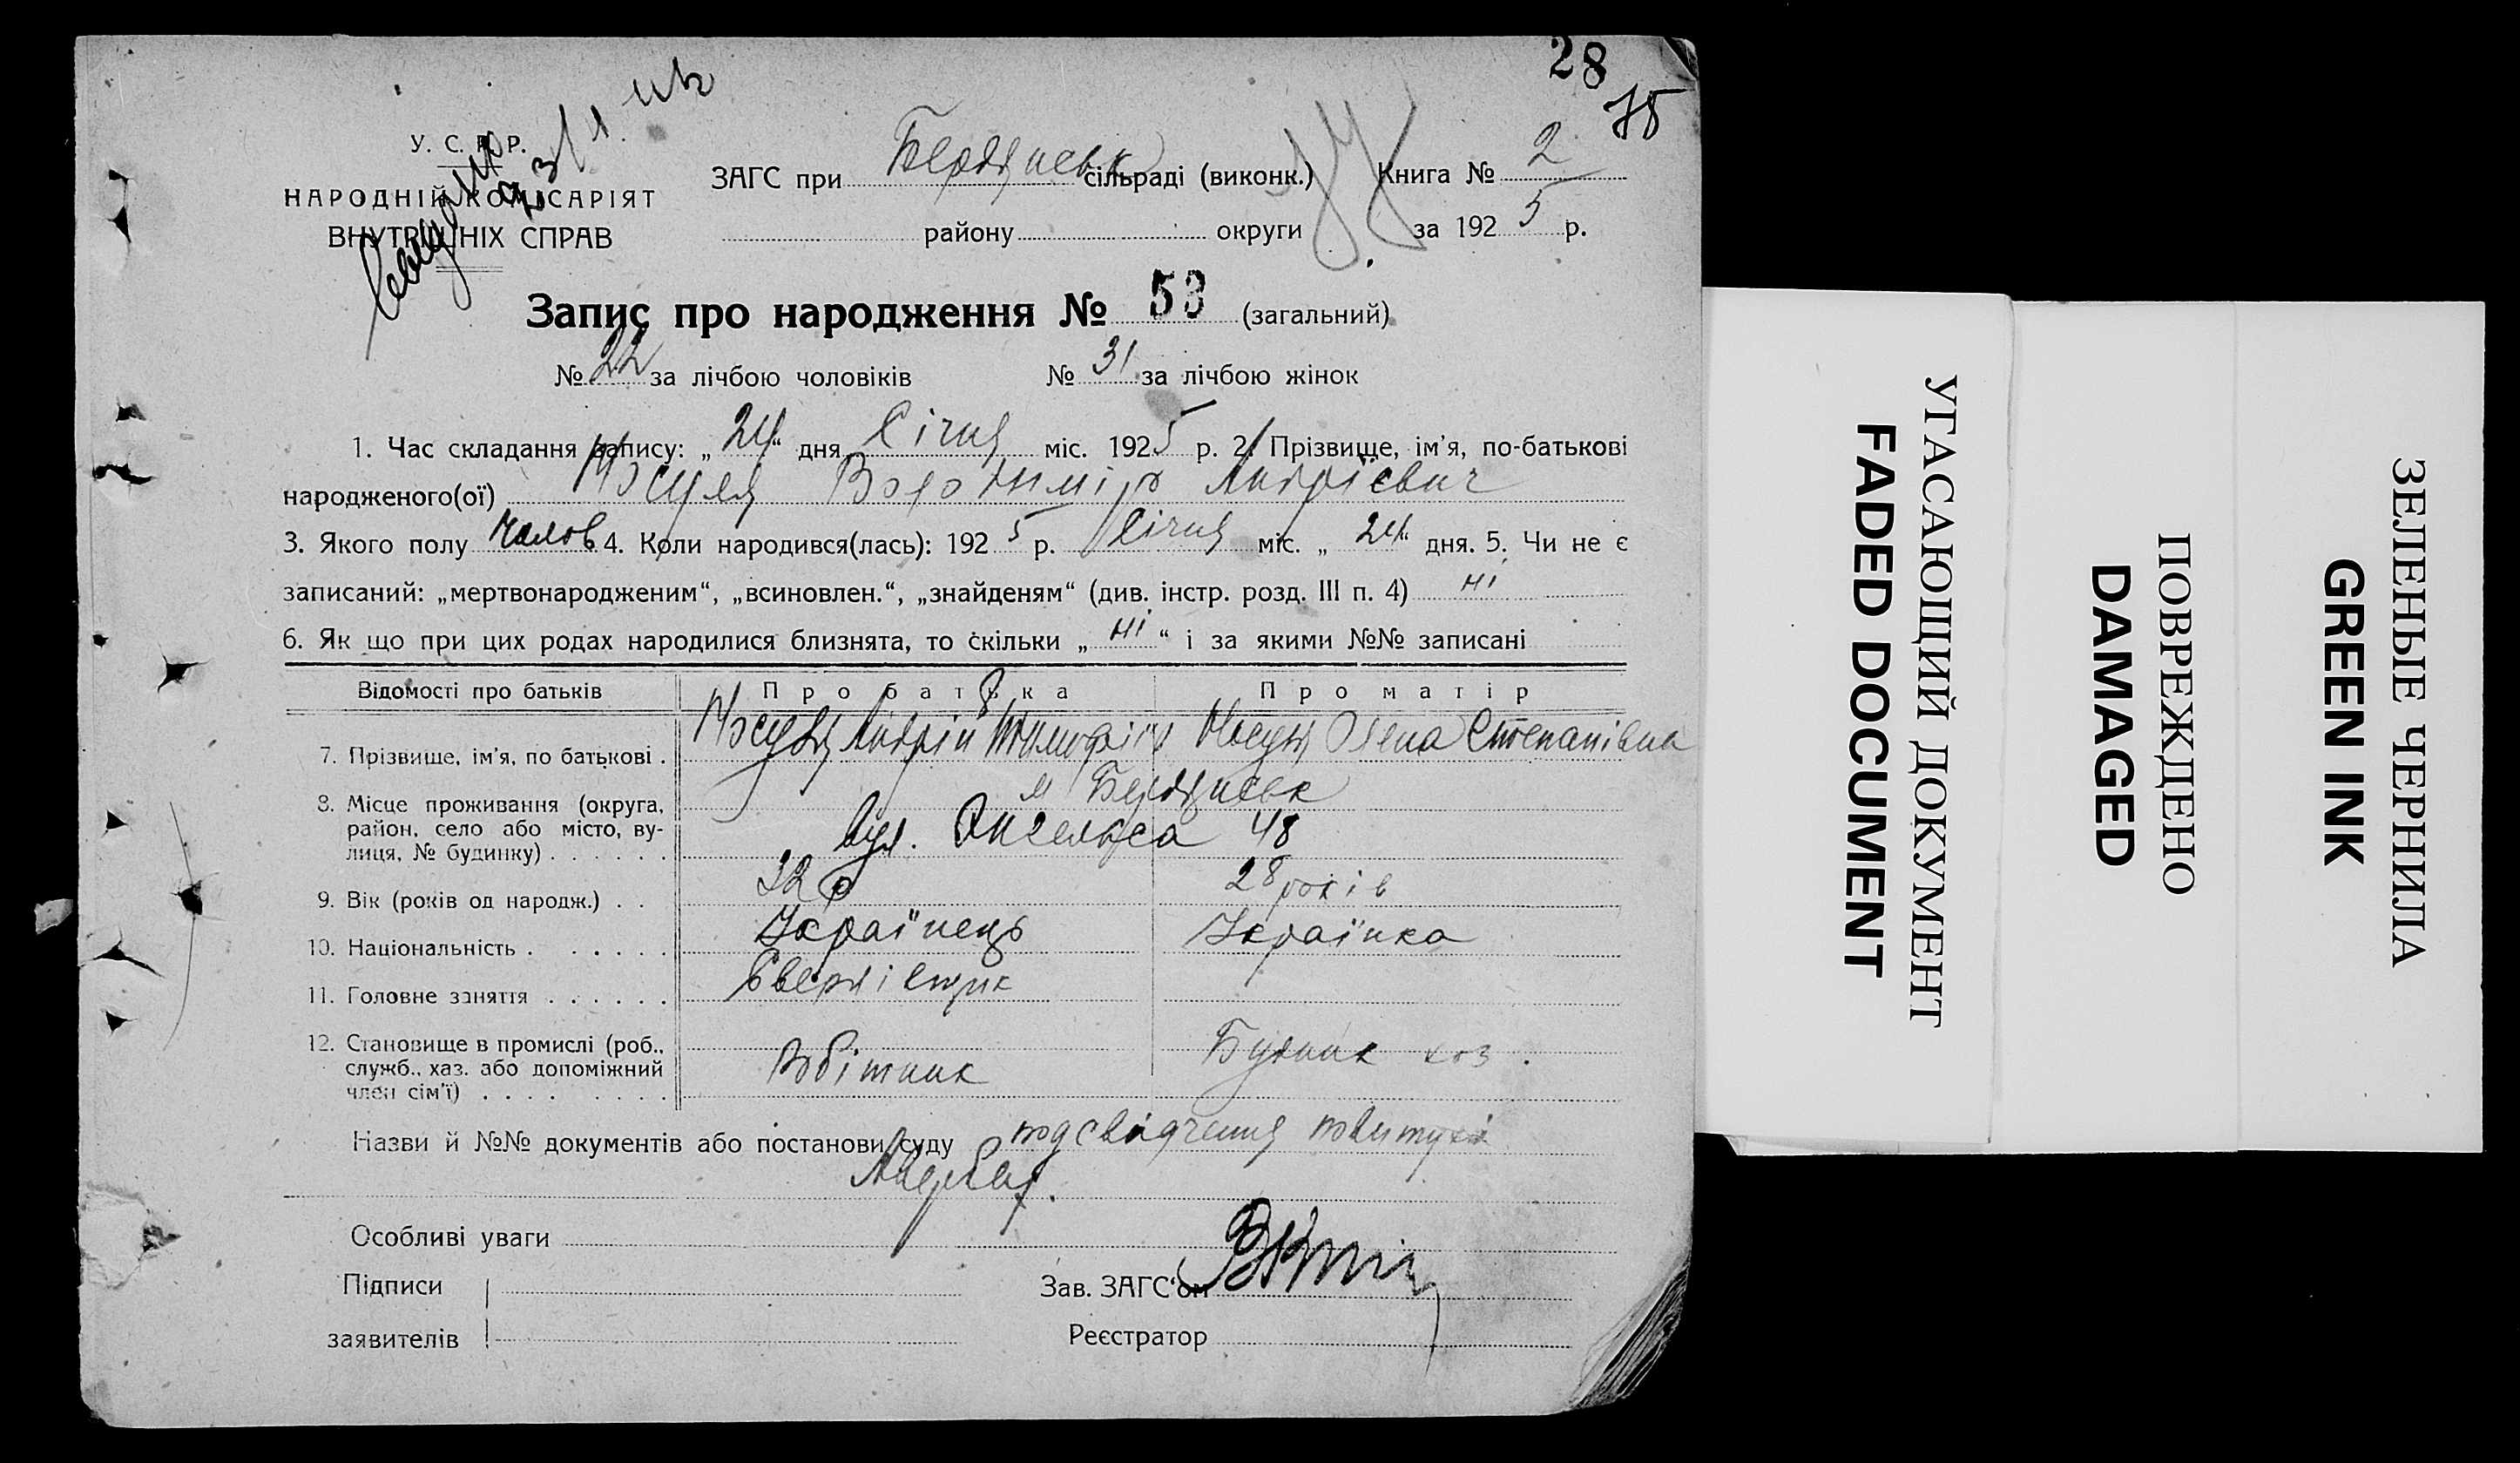 28
75
У. С. Р. Р.
НАРОДНІЙ КОМІСАРІЯТ
ВНУТРІШНІХ СПРАВ
ЗАГС при Бердянськ сільраді (виконк.) Книга № 2
району округи за 1925 р.
Запис про народження № 53 (загальний)
№ 22 за лічбою чоловіків № 31 за лічбою жінок
1. Час складання запису: „24“ дня Січня міс. 1925 р. 2. Прізвище, ім'я, по-батькові
народженого(ої) Володимір Андрієвич
3. Якого полу Чолов 4. Коли народився(лась): 1925 р. Січня міс. „24“ дня. 5. Чи не є
записаний: „мертвонародженим“, „всиновлен.“, „знайденям“ (див. інстр. розд. III п. 4) ні
6. Як що при цих родах народилися близнята, то скільки „ні“ і за якими №№ записані
Відомості про батьків Про батька Про матір
7. Прізвище, ім'я, по батькові . Андрій Тимофіїв Олена Степанівна
8. Місце проживання (округа, м Бердянськ
район, село або місто, ву-
лиця, № будинку) . . . . . . вул. Енгельса 48
9. Вік (років од народж.) . . 32 р 28 років
10. Національність . . . . . . Українець Українка
11. Головне заняття . . . . . .
12. Становище в промислі (роб.,
служб., хаз. або допоміжний Робітник
член сім'ї) . . . . . . . .
Назви й №№ документів або постанови суду посвідчення повитухи
Особливі уваги
Підписи Зав. ЗАГС'ом
заявителів Реєстратор
УГАСАЮЩИЙ ДОКУМЕНТ
FADED DOCUMENT
ПОВРЕЖДЕНО
DAMAGED
ЗЕЛЕНЫЕ ЧЕРНИЛА
GREEN INK